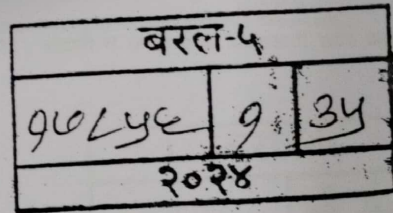 बरल-५
१७८५६ १ ३५
२०२४